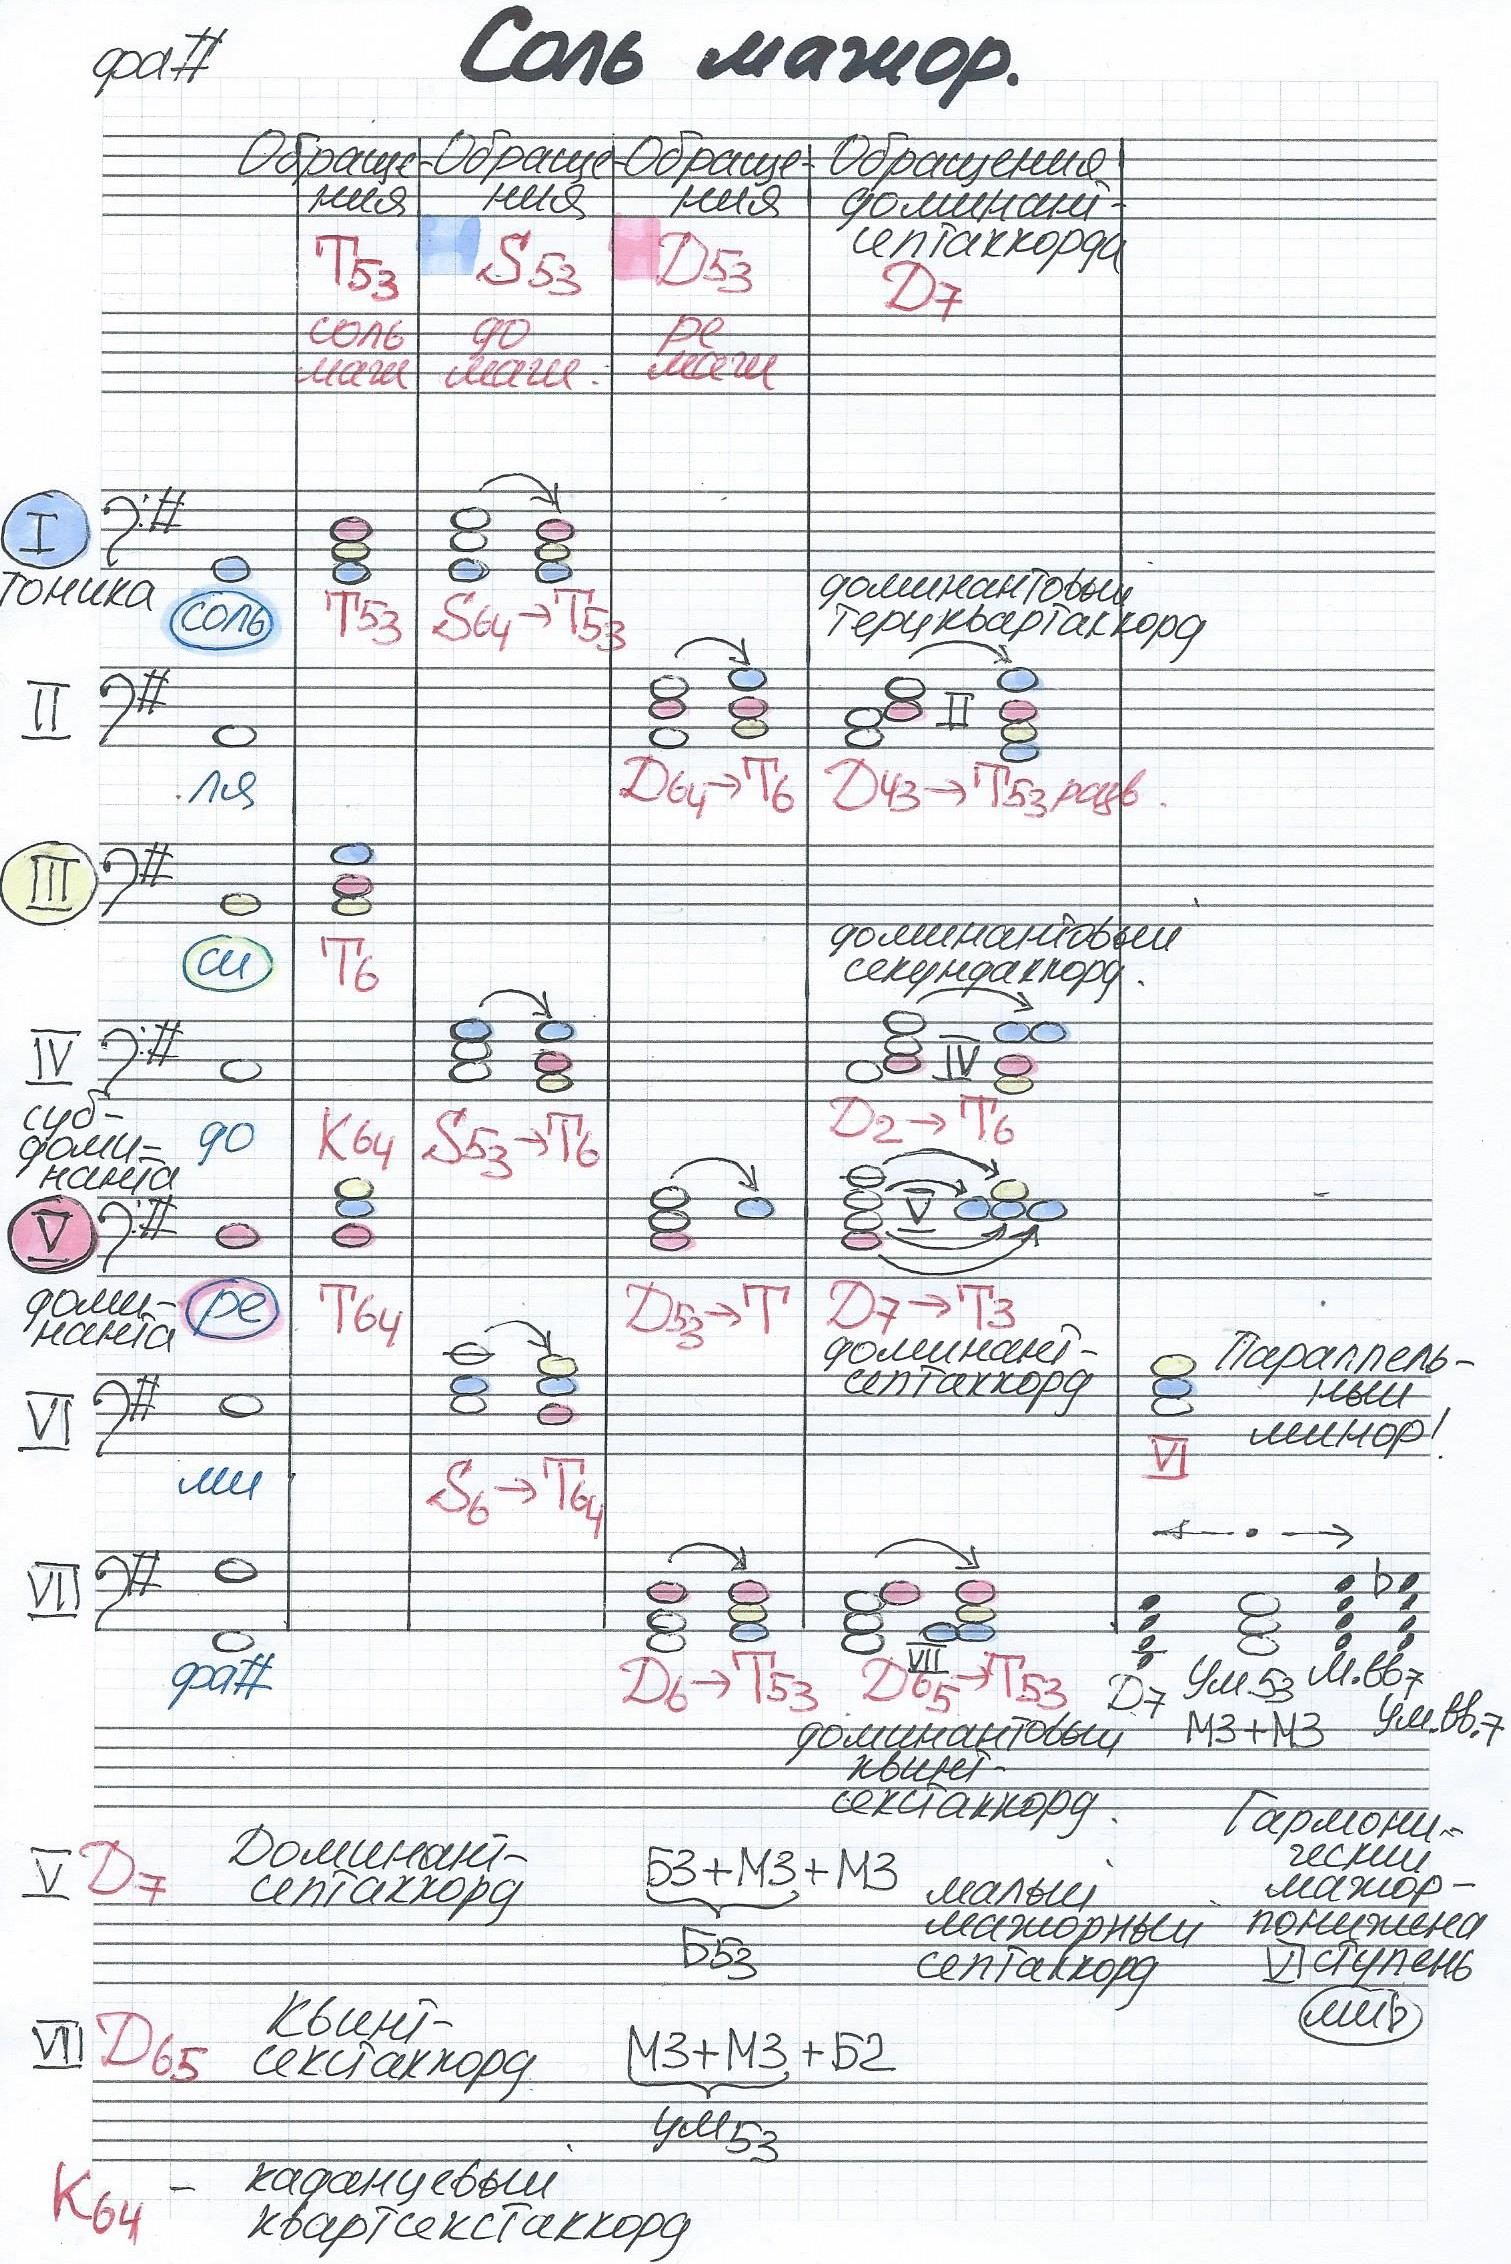 фа#
Соль мажор.
Обраще-
ния
T53
соль
маж
Обраще-
ния
S53
до
маж.
Обраще-
ния
D53
ре
маж
Обращения
доминант-
септаккорда
D7
I
тоника
соль
T53
S64→T53
доминантовый
терцквартаккорд
II
ля
D64→T6
II
D43→T53 разв.
III
си
T6
доминантовый
секундаккорд.
IV
суб-
доми-
нанта
до
K64
S53→T6
IV
D2→T6
V
доми-
нанта
ре
T64
D53→T
V
D7→T3
доминант-
септаккорд
VI
ми
S6→T64
Параллель-
ный
минор!
VI
VII
фа#
D6→T53
VII
D65→T53
доминантовый
квинт-
секстаккорд.
D7
Ум.53
М3+М3
М.вв7
Ум.вв.7
V D7
Доминант-
септаккорд
Б3+М3+М3
Б53
малый
мажорный
септаккорд
Гармони-
ческий
мажор-
понижена
VI ступень
ми♭
VII D65
Квинт-
секстаккорд
М3+М3+Б2
ум53
K64 - каданцевый
квартсекстаккорд